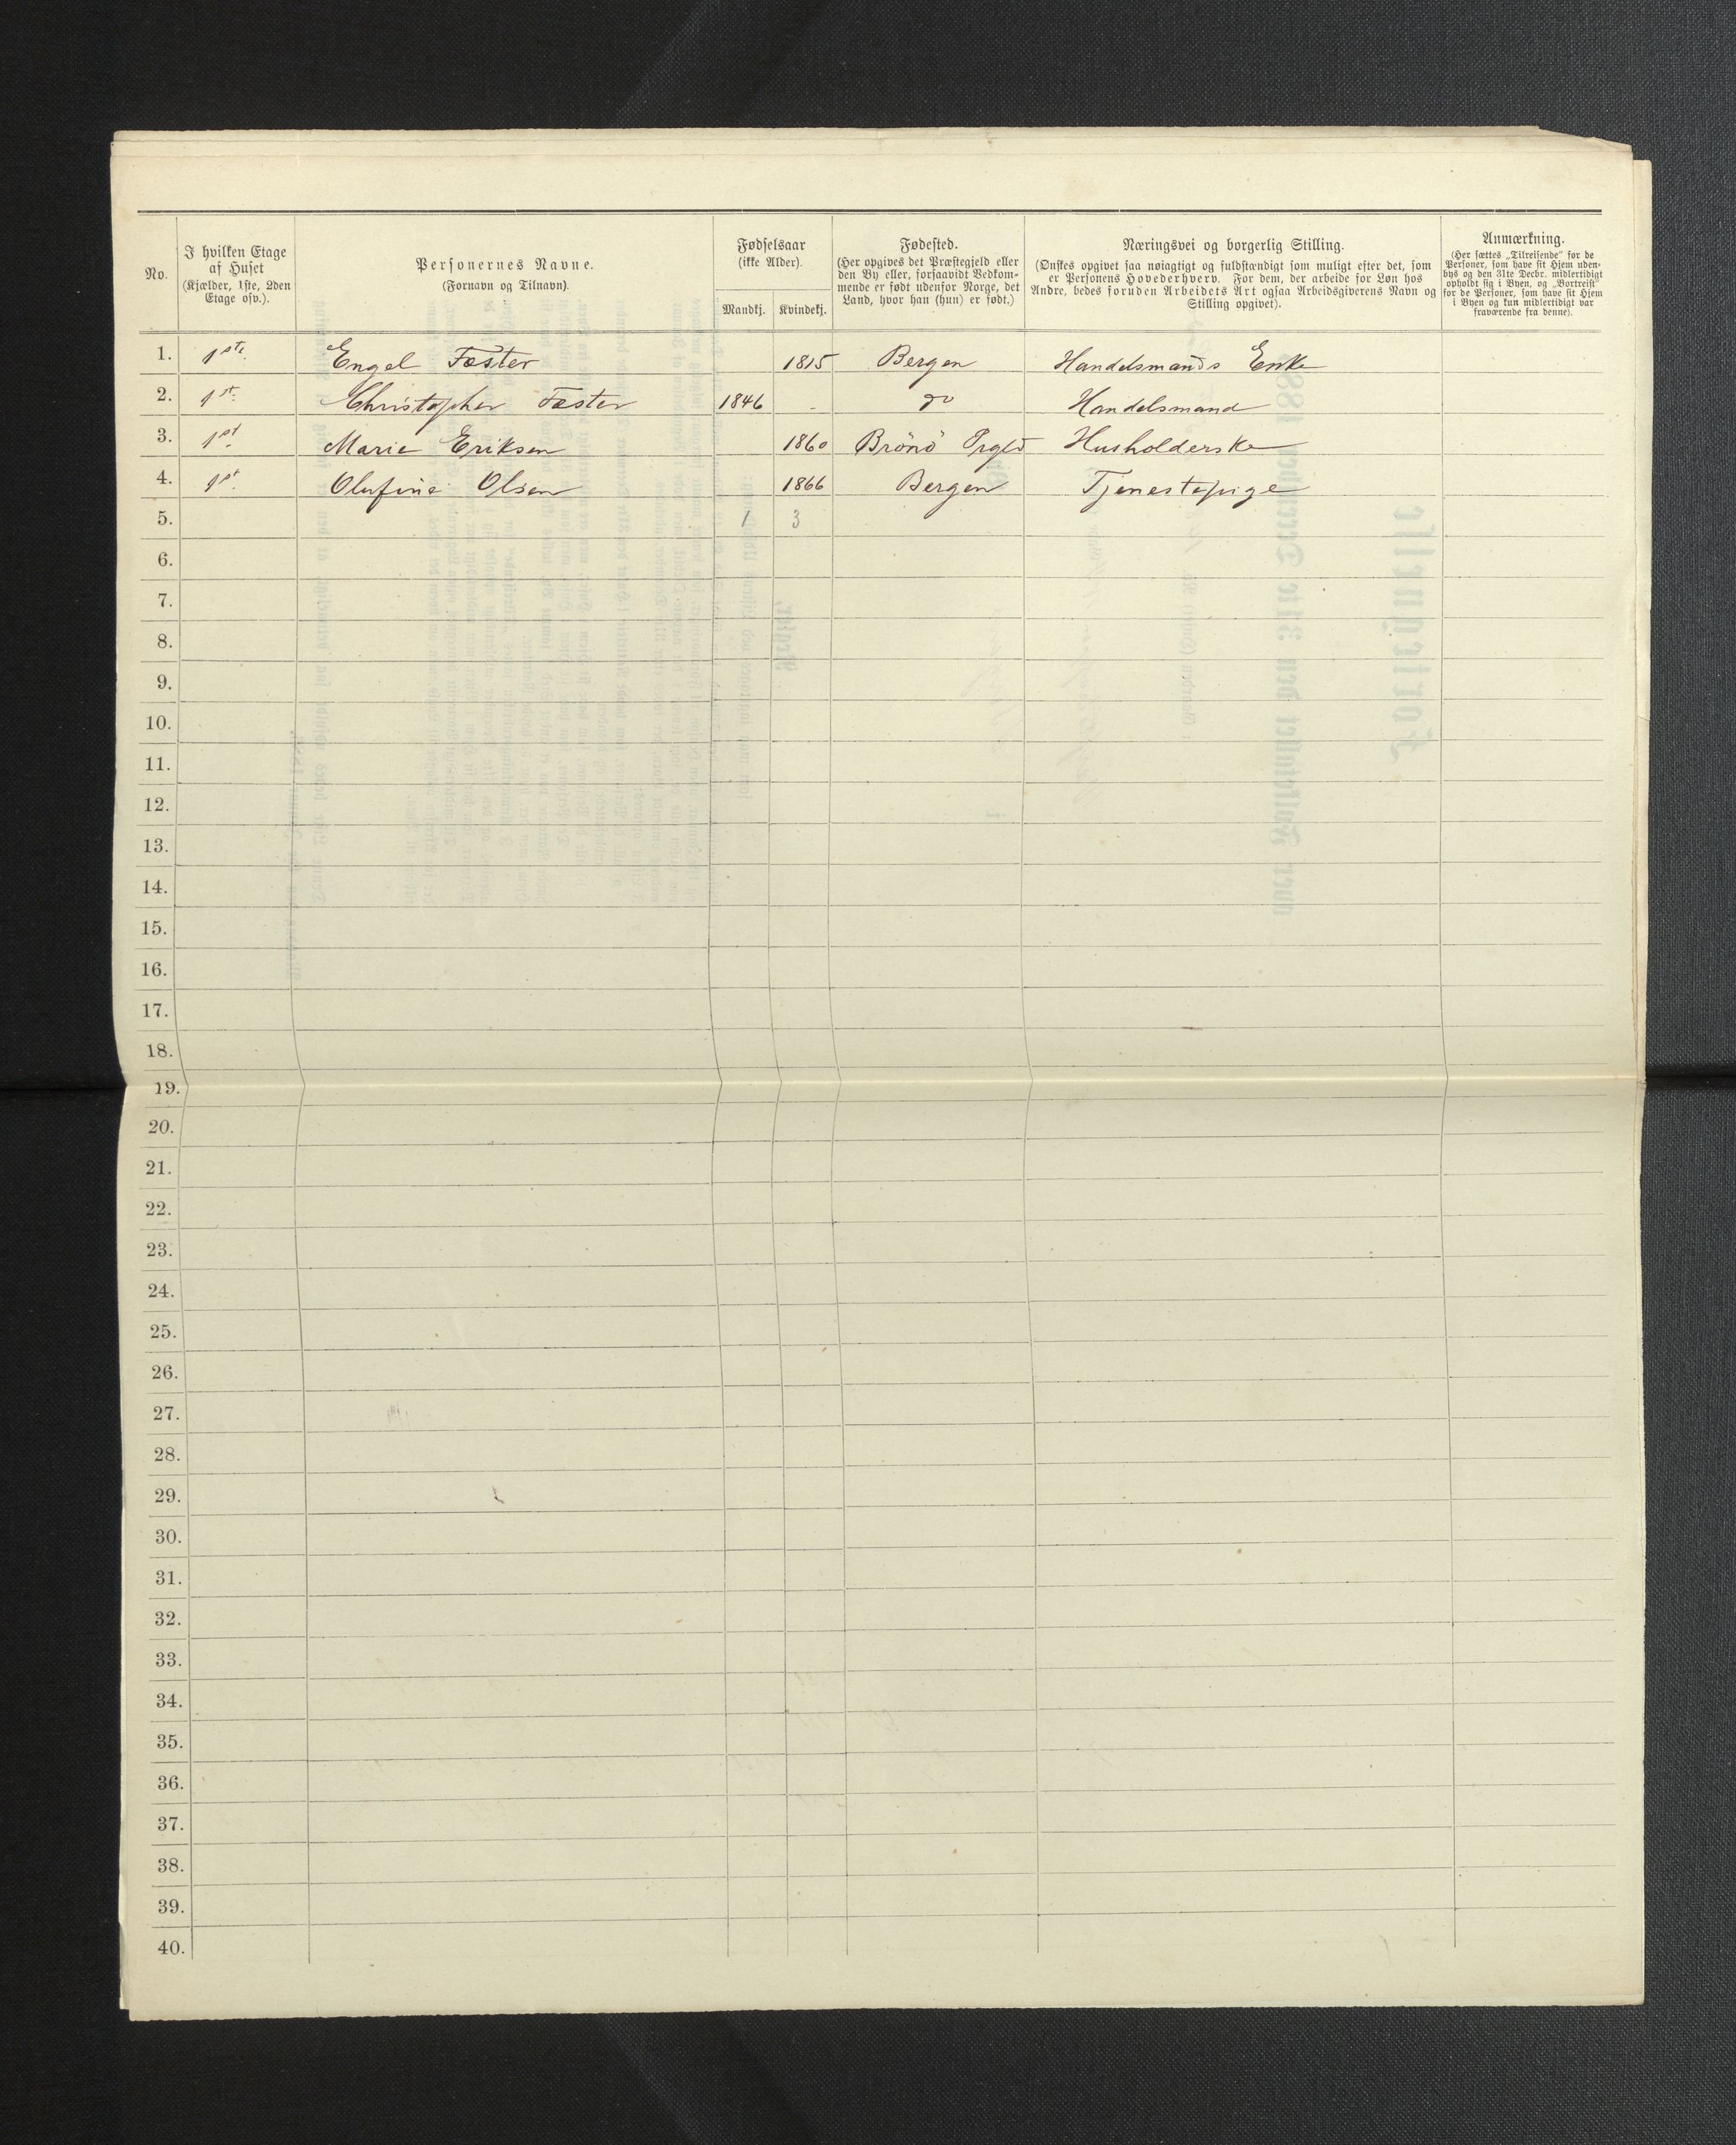 No.
I hvilken Etage af Huset (Kjælder, 1ste, 2den Etage osv.).
Personernes Navne. (Fornavn og Tilnavn).
Fødselsaar (ikke Alder).
Mandkj. Kvindekj.
Fødested. (Her opgives det Præstegjeld eller den By eller, forsaavidt Vedkommende er født udenfor Norge, det Land, hvor han (hun) er født.)
Næringsvei og borgerlig Stilling. (Ønskes opgivet saa nøiagtigt og fuldstændigt som muligt efter det, som er Personens Hovederhverv. For dem, der arbeide for Løn hos Andre, bedes foruden Arbeidets Art ogsaa Arbeidsgiverens Navn og Stilling opgivet).
Anmærkning. (Her sættes „Tilreisende" for de Personer, som have sit Hjem udenbys og den 31te Decbr. midlertidigt opholdt sig i Byen, og „Bortreist" for de Personer, som have sit Hjem i Byen og kun midlertidigt var fraværende fra denne).
1. 1ste. Engel Fæster 1815 Bergen Handelsmands Enke
2. 1st. Christopher Fæster 1846 - do Handelsmand
3. 1st Marie Eriksen 1860 Brönö Prgld Husholderske
4. 1st. Olufine Olsen 1866 Bergen Tjenestepige
5. 1 3
6.
7.
8.
9.
10.
11.
12.
13.
14.
15.
16.
17.
18.
19.
20.
21.
22.
23.
24.
25.
26.
27.
28.
29.
30.
31.
32.
33.
34.
35.
36.
37.
38.
39.
40.